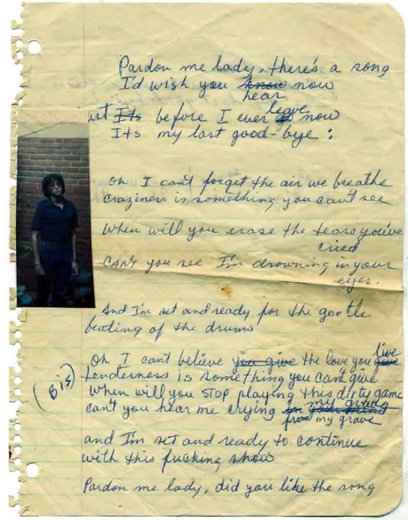 Pardon me lady, there's a song
I'd wish you know now
hear
ut Its before I ever go now
leave
Its my last good-bye:
Oh I can't forget the air we breathe
craziness is something you can't see
When will you erase the tears you've
cried
CAN't you see I'm drowning in your
eyes.
And I'm set and ready for the gentle
beating of the drums
Oh I can't believe you give the love you give
live
tenderness is something you can't give
(Bis)
When will you stop playing this dirty game
can't you hear me crying in your mind
my grave
from my grave
and I'm set and ready to continue
with this fucking show
Pardon me lady, did you like the song